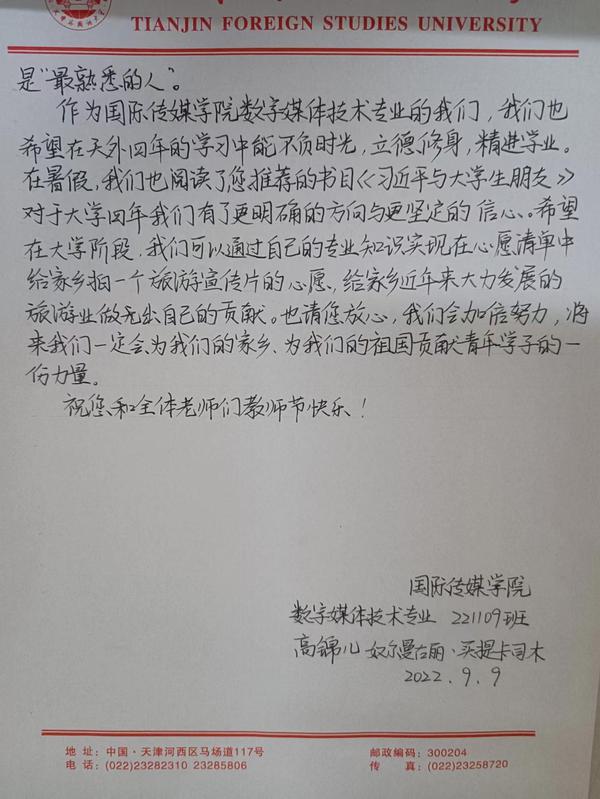 TIANJIN FOREIGN STUDIES UNIVERSITY
是“最熟悉的人”。
作为国际传媒学院数字媒体技术专业的我们，我们也
希望在天外四年的学习中能不负时光，立德修身，精进学业。
在暑假，我们也阅读了您推荐的书目《习近平与大学生朋友》
对于大学四年我们有了更明确的方向与更坚定的信心。希望
在大学阶段，我们可以通过自己的专业知识实现在心愿清单中
给家乡拍一个旅游宣传片的心愿，给家乡近年来大力发展的
旅游业做出自己的贡献。也请您放心，我们会加倍努力，将
来我们一定会为我们的家乡、为我们的祖国贡献青年学子的一
份力量。
祝您和全体老师们教师节快乐！
国际传媒学院
数字媒体技术专业 221109班
高锦儿 奴尔曼古丽·买提卡司木
2022.9.9
地 址：中国·天津河西区马场道117号
邮政编码：300204
电 话：(022)23282310 23285806
传 真：(022)23258720